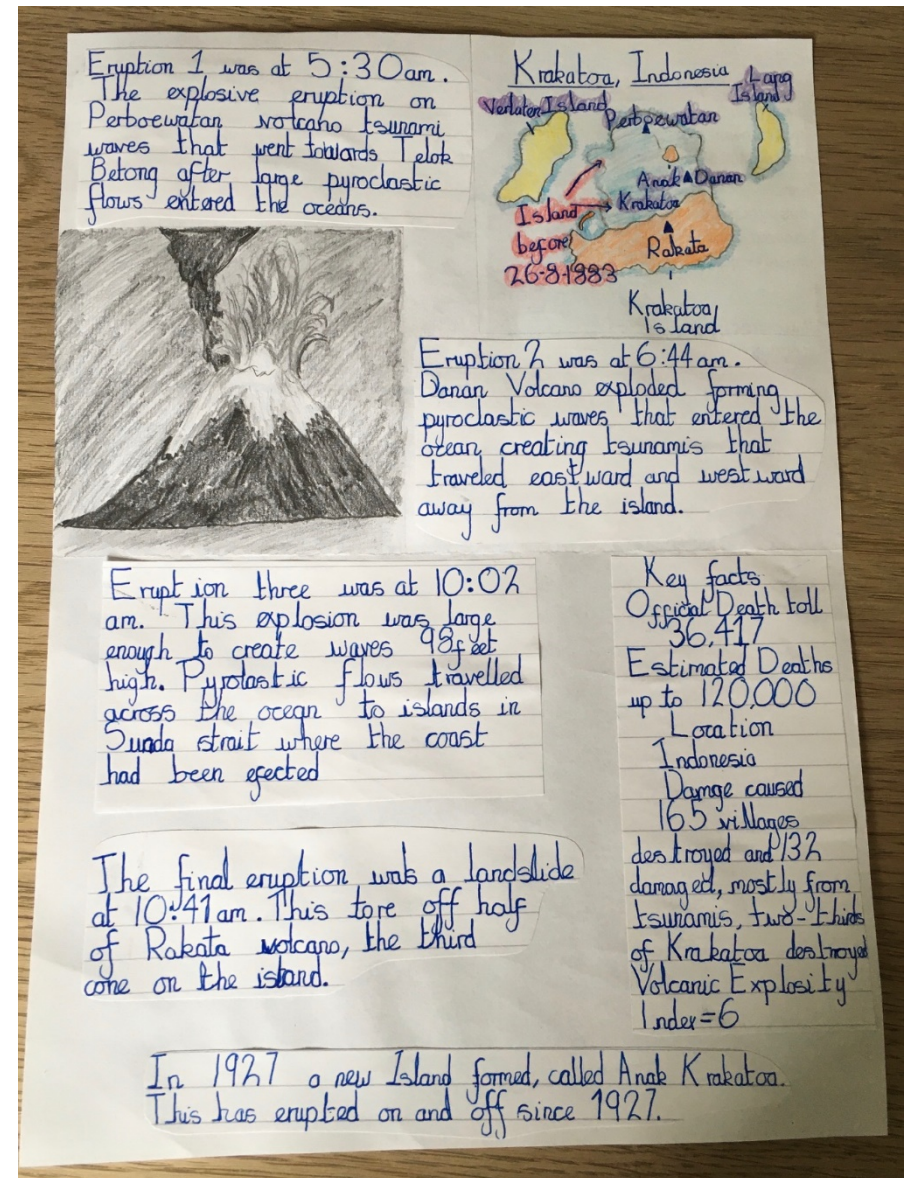 Eruption 1 was at 5:30am.
The explosive eruption on
Perboewatan volcano tsunami
waves that went towards Telok
Betong after large pyroclastic
flows entered the oceans.
Krakatoa, Indonesia
Verlaten Island
Lang
Island
Perboewatan
Anak
Krakatoa
Danan
Island
before
26-8-1883
Rakata
Krakatoa
Island
Eruption 2 was at 6:44am.
Danan Volcano exploded forming
pyroclastic waves that entered the
ocean creating tsunamis that
traveled eastward and westward
away from the island.
Eruption three was at 10:02
am. This explosion was large
enough to create waves 98feet
high. Pyrolastic flows travelled
across the ocean to islands in
Sunda strait where the coast
had been efected
Key facts
Official Death toll
36,417
Estimated Deaths
up to 120,000
Location
Indonesia
Damge caused
165 villages
destroyed and 132
damaged, mostly from
tsunamis, two-thirds
of Krakatoa destroyed
Volcanic Explosity
Index=6
The final eruption was a landslide
at 10:41am. This tore off half
of Rakata volcano, the third
cone on the island.
In 1927 a new Island formed, called Anak Krakatoa.
This has erupted on and off since 1927.